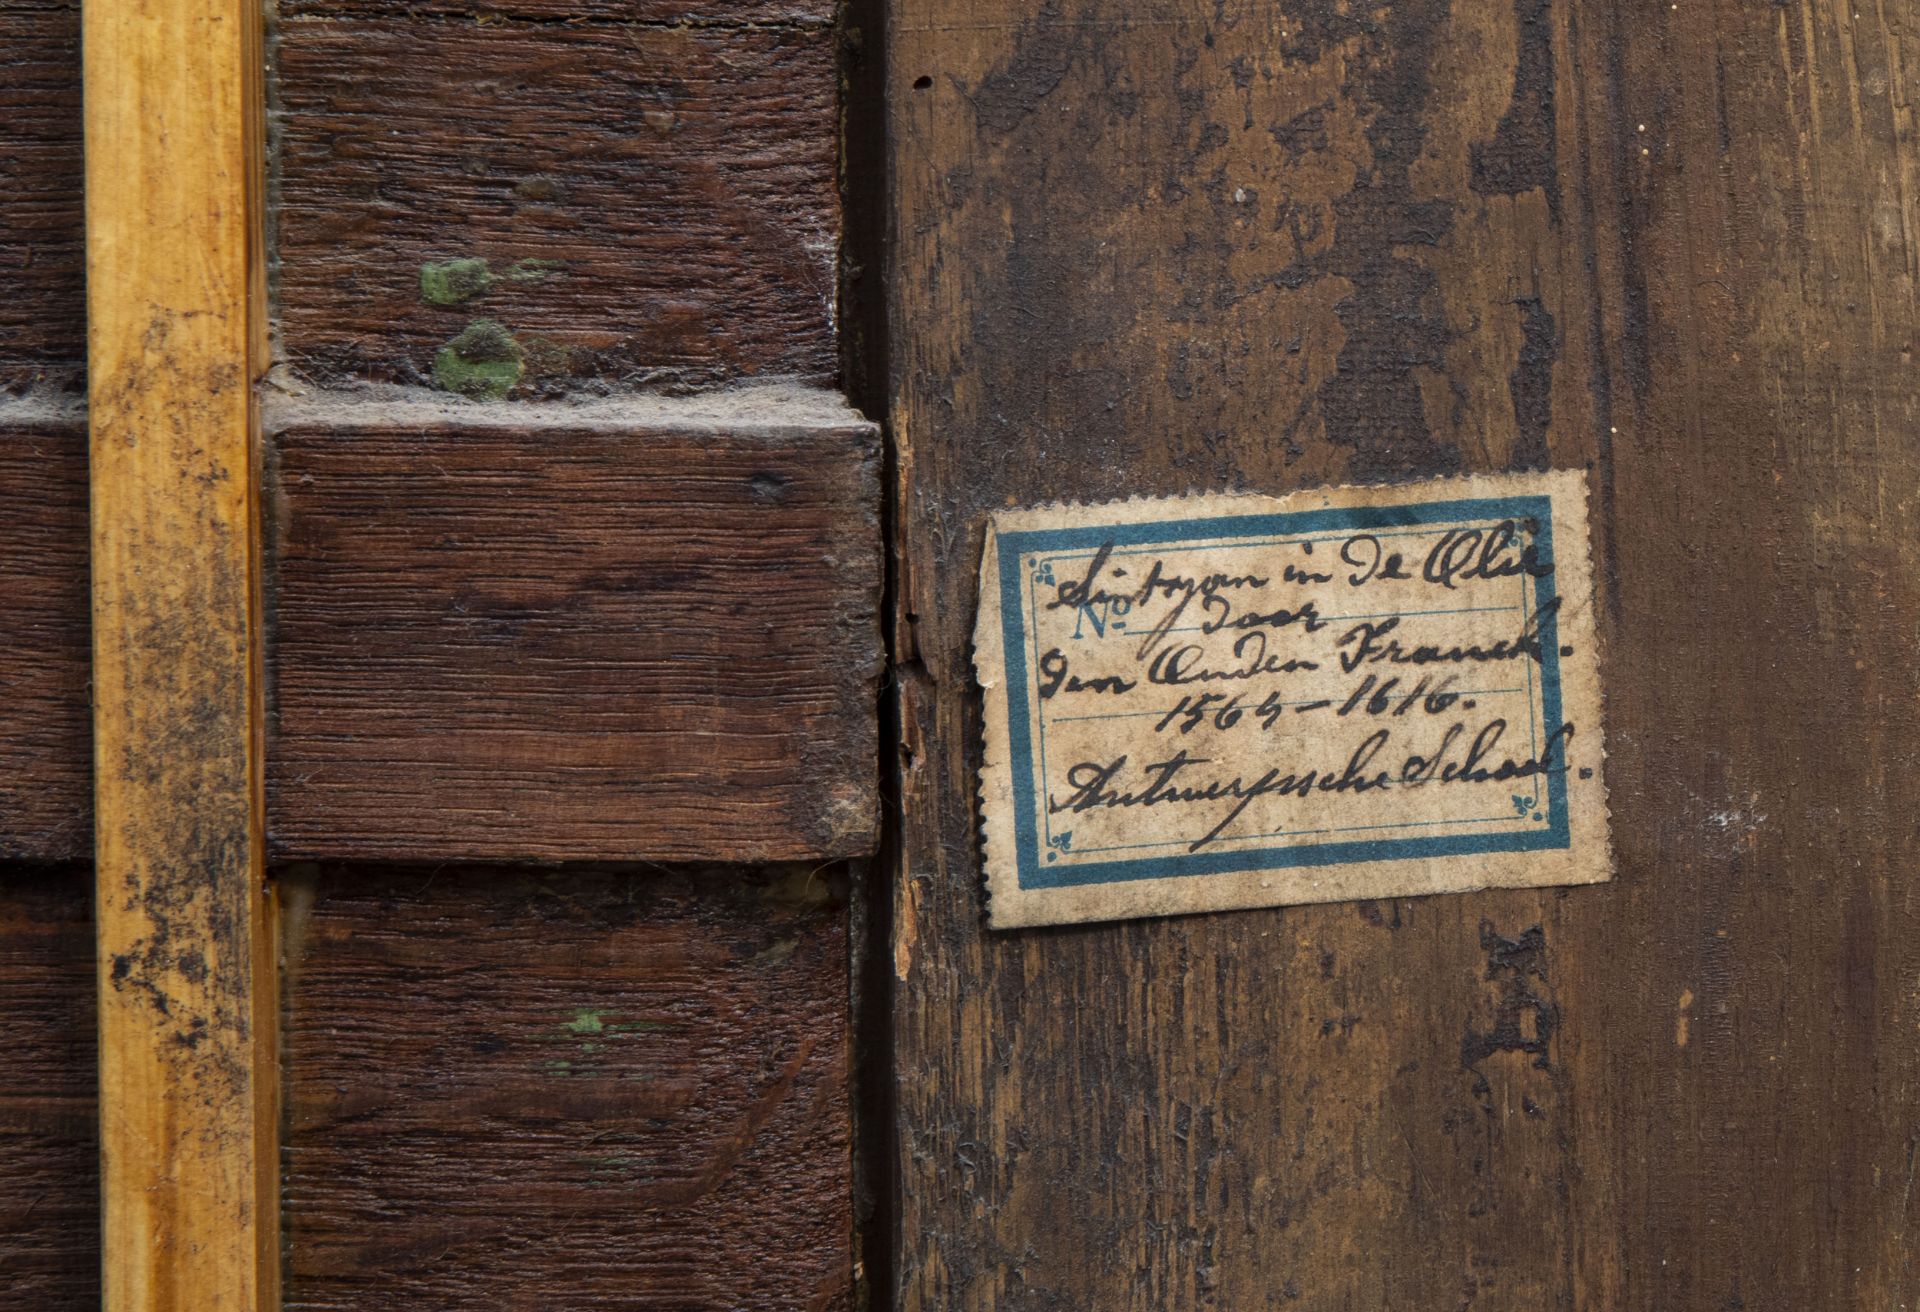 Sintjan in de Olie
No door
den Ouden Franck.
1564-1616.
Antwerpsche School.